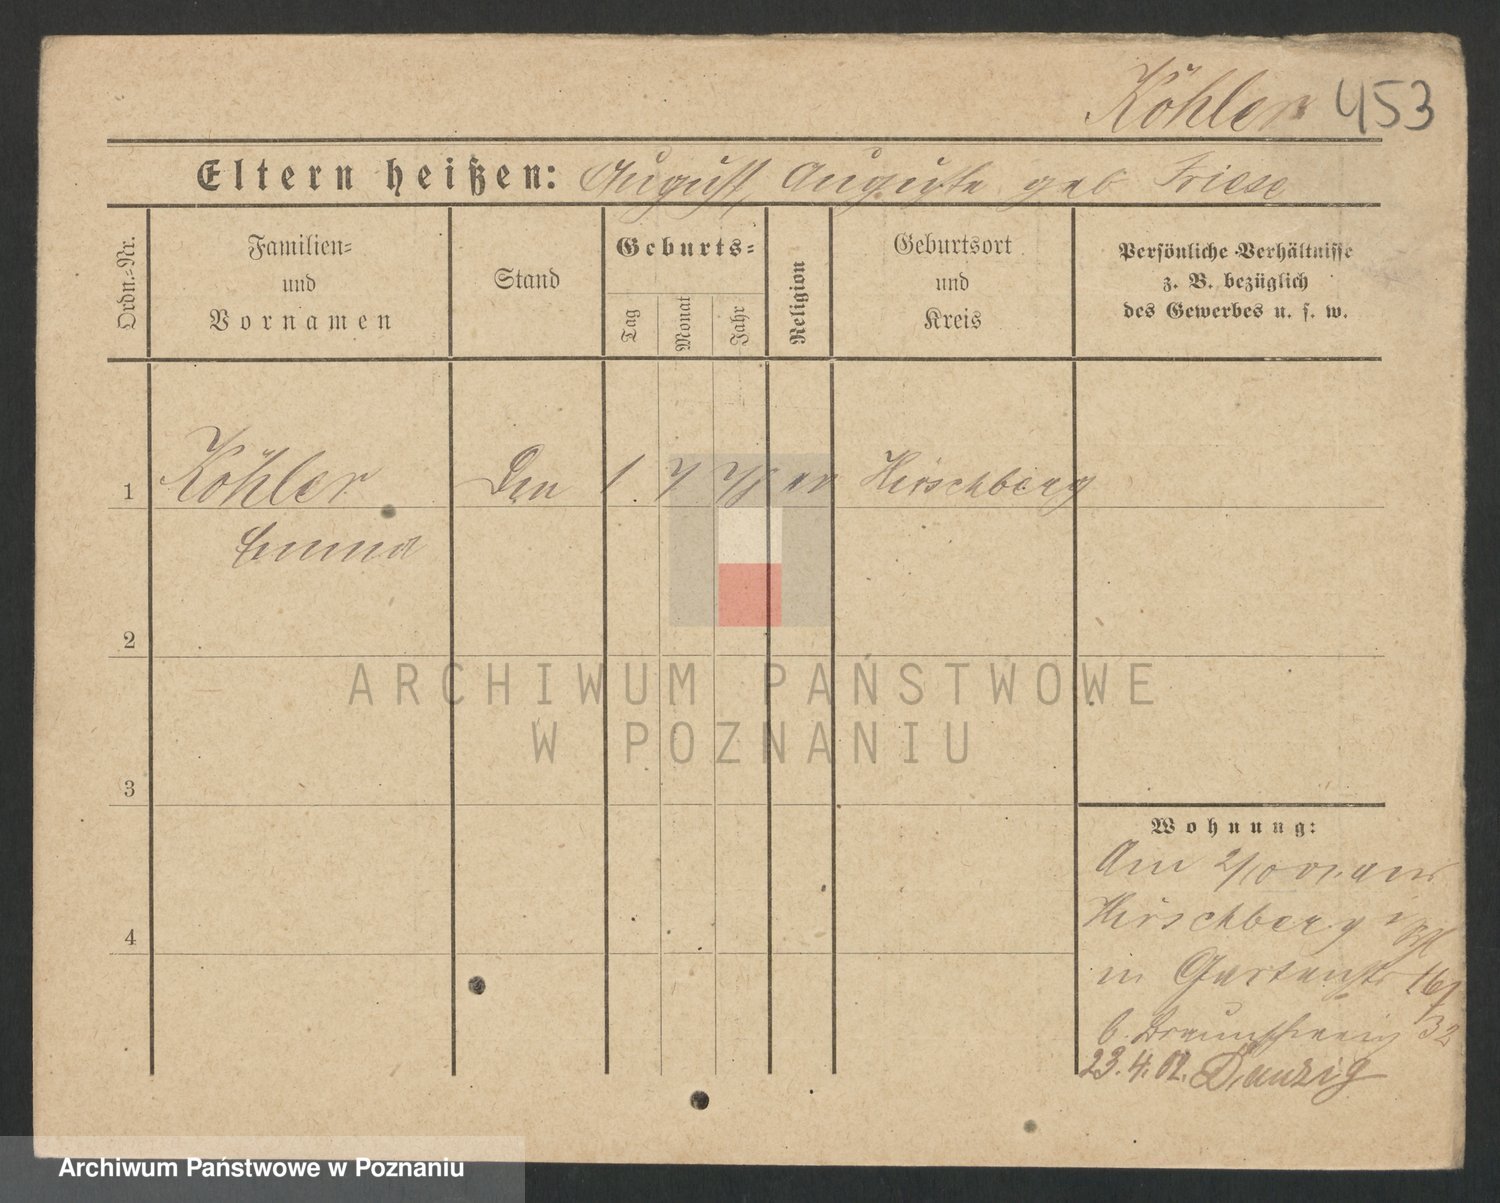 Köhler 453
Eltern heißen: August, Auguste geb Friese
Ordn.-Nr.
Familien-
und
Vornamen
Stand
Geburts-
Tag
Monat
Jahr
Religion
Geburtsort
und
Kreis
Persönliche Verhältnisse
z. B. bezüglich
des Gewerbes u. s. w.
1 Köhler 1. 7 78 ev Hirschberg
Emma
2
ARCHIWUM PAŃSTWOWE
W POZNANIU
3
Wohnung:
Am 2/10 01 aus
4
Hirschberg
in Gartenstr 16
b. Braunschweig 32
23.4.02. Danzig
Archiwum Państwowe w Poznaniu